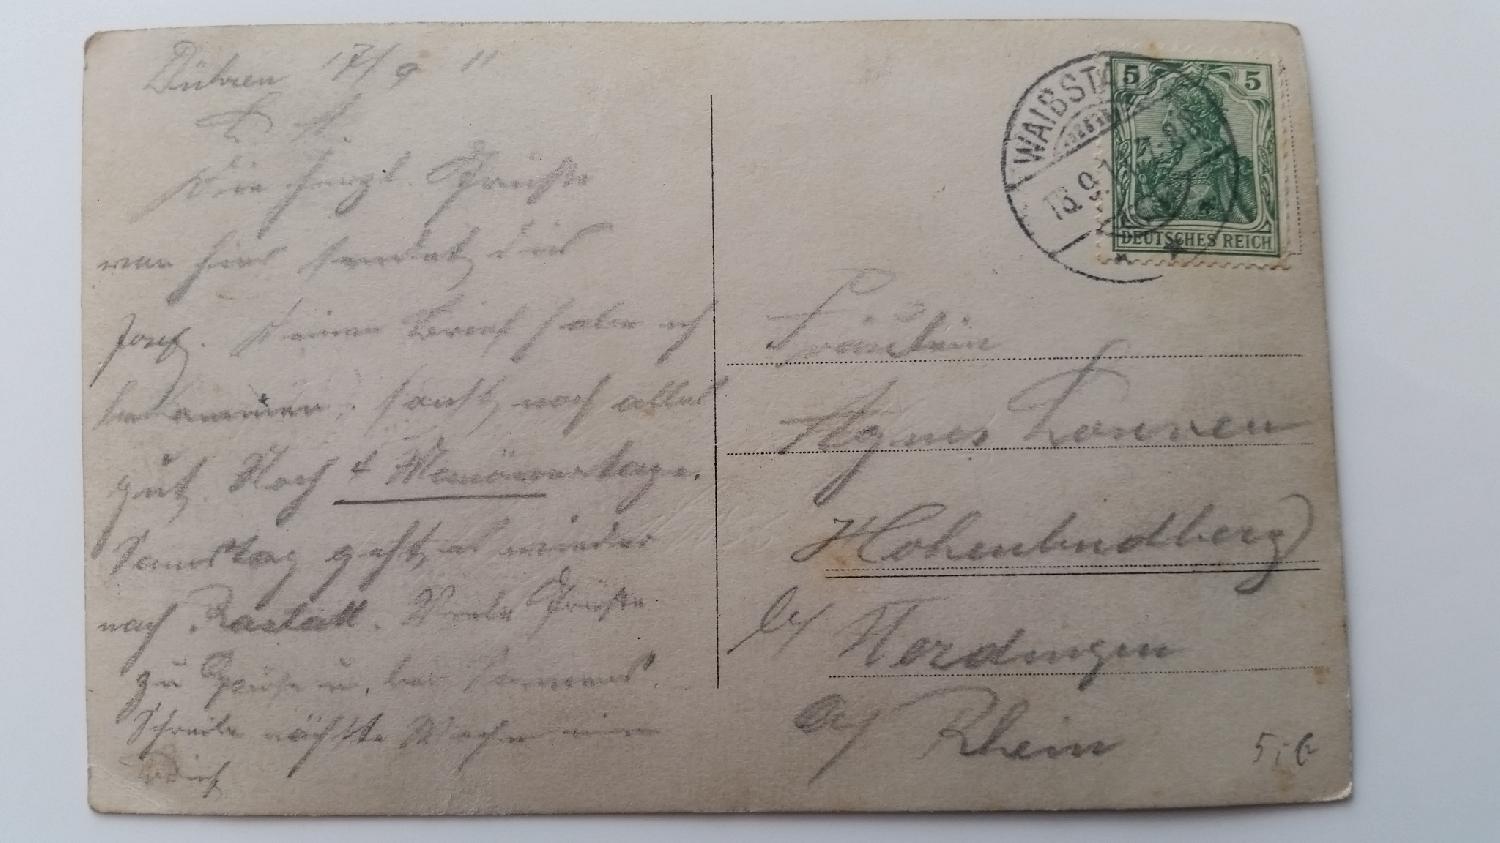 Dühren 17/9 11
L. A.
Die herzl. Grüße
von hier sendet dir
Josef. Deinen Brief habe ich
bekommen, sonst noch alles
gut. Noch 4 Manövertage.
Samstag geht es wieder
nach Rastatt. Viele Grüße
zu Hause u. bei
Schreibe nächste Woche einen
Brief
WAIBSTA
18.9.1
5 5
DEUTSCHES REICH
Fräulein
Agnes
Hohenbudberg
b/ Uerdingen
a/ Rhein
5,-